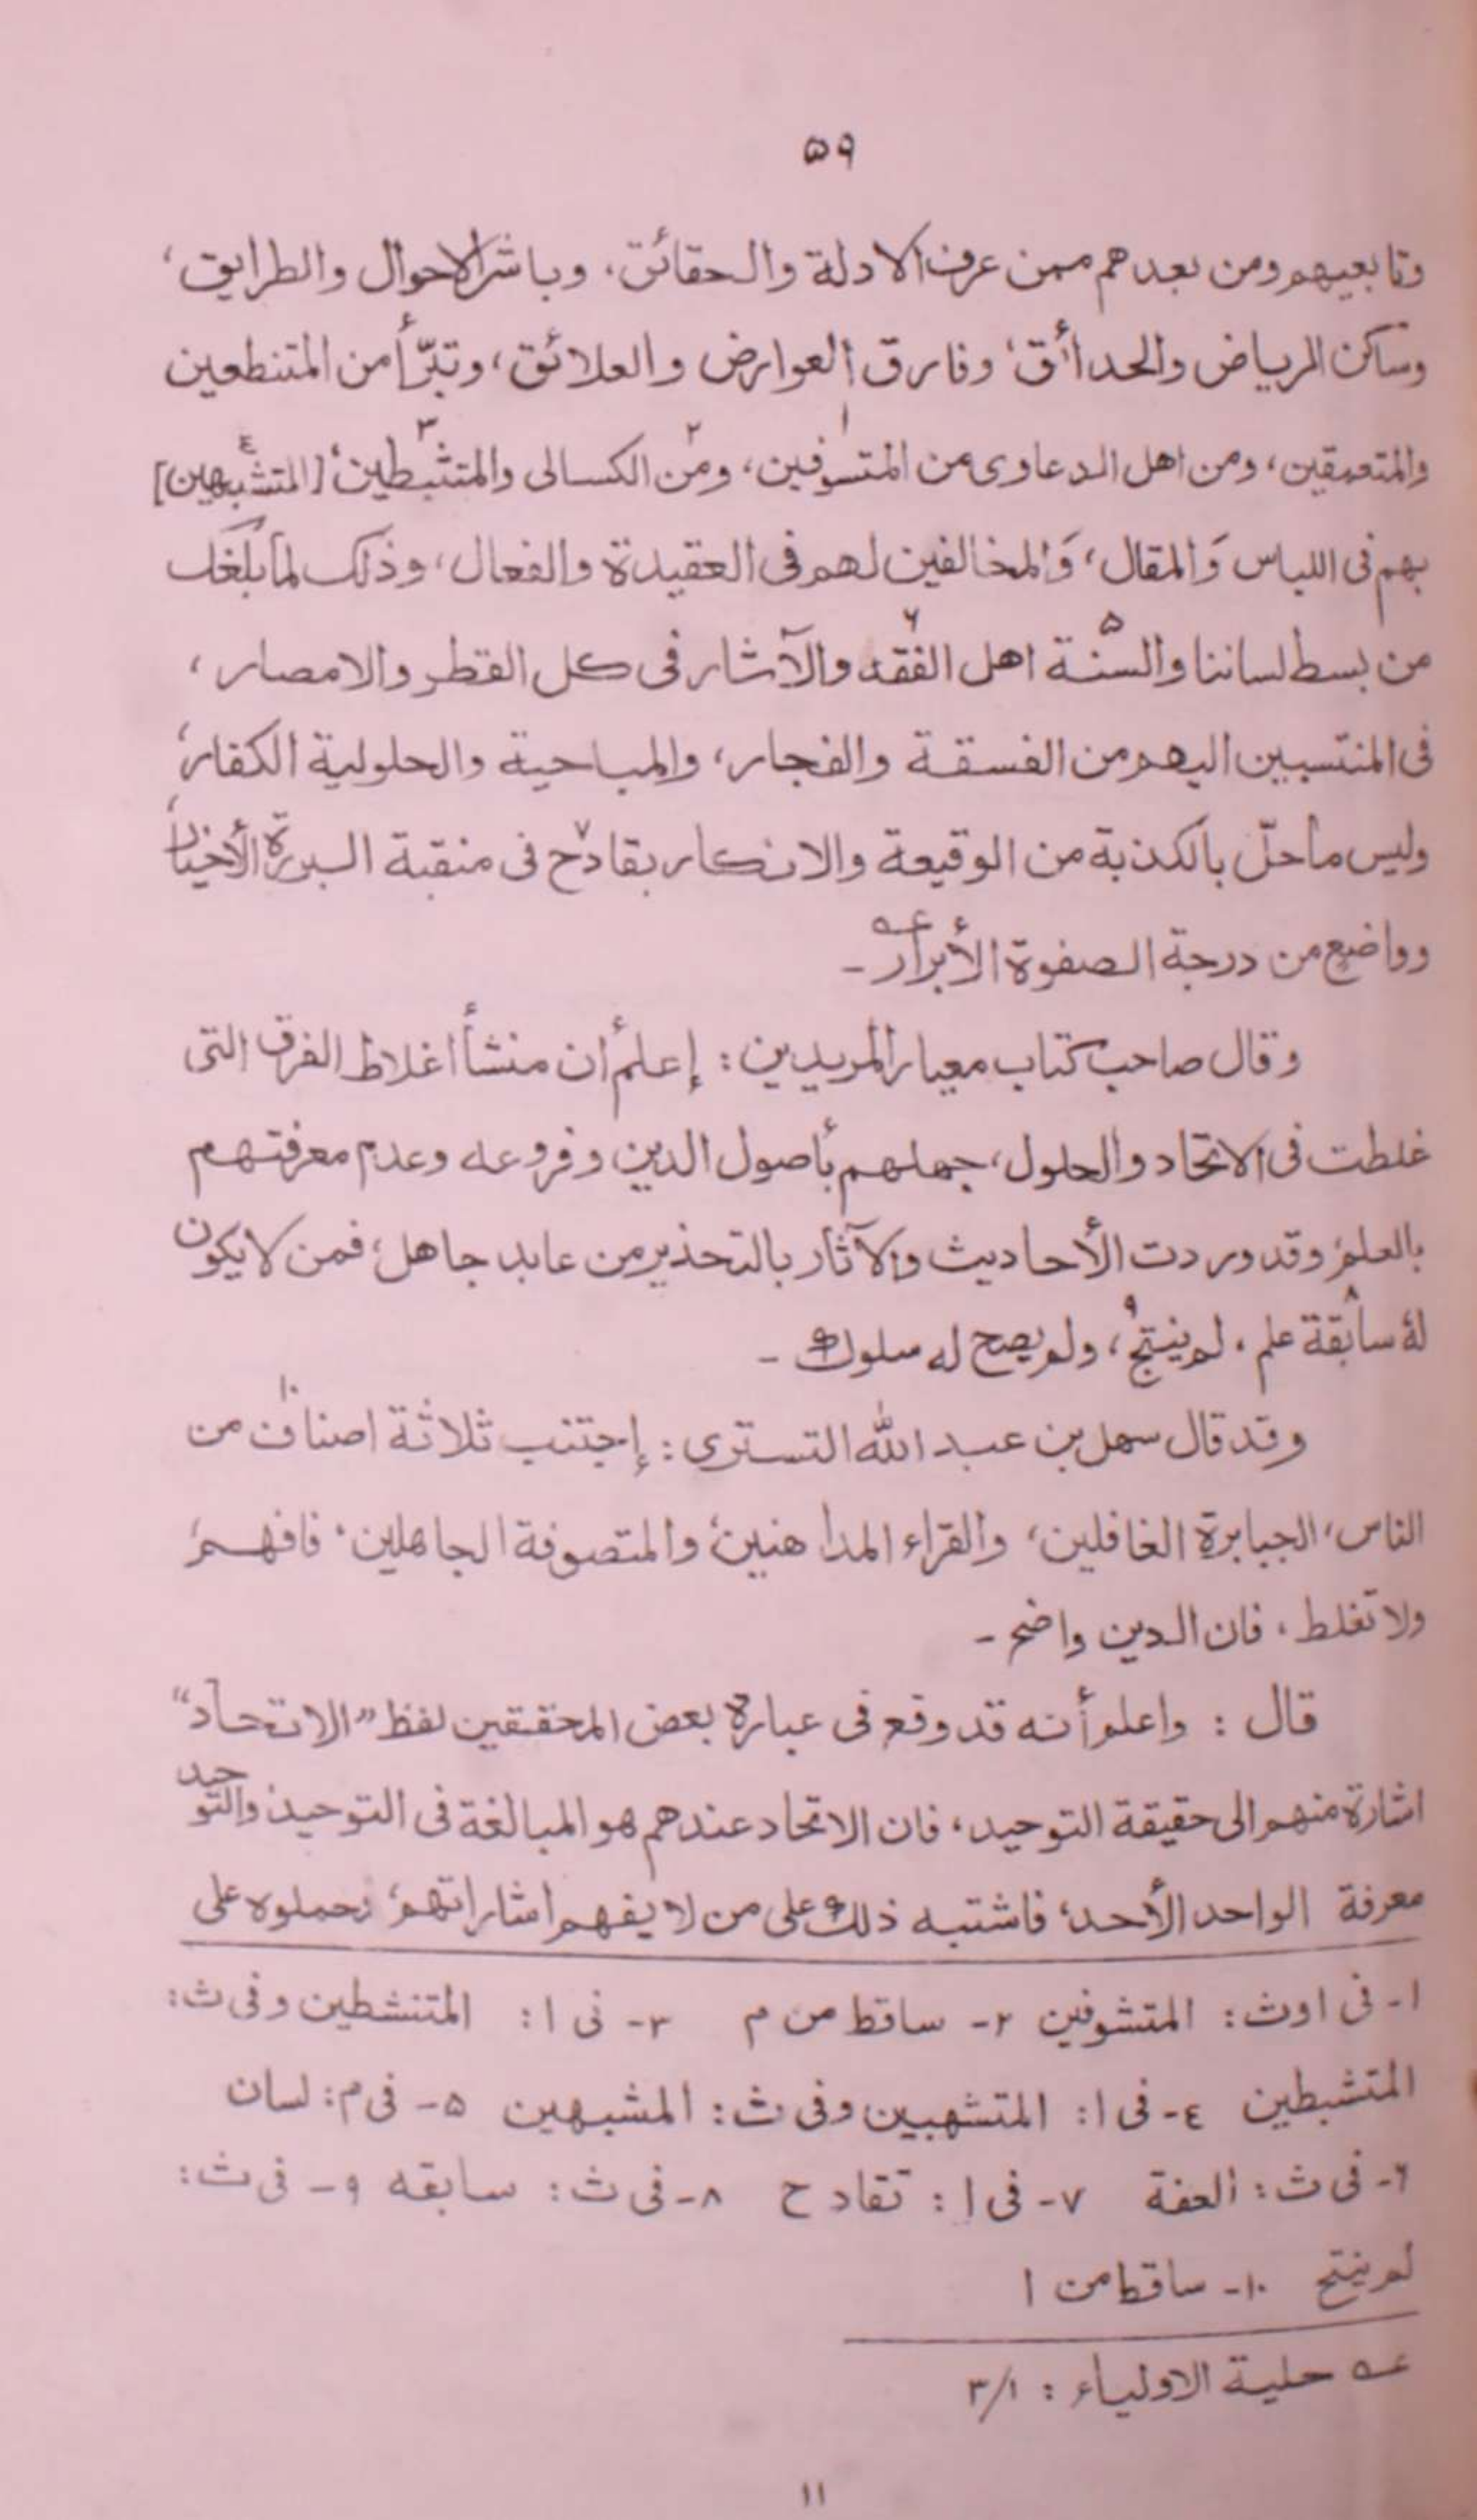 ۵۹
وتابعيهم ومن بعدهم ممن عرف الادلة والحقائق، وباشر الاحوال والطرايق،
وساكن الرياض والحدائق، وفارق العوارض والعلائق، وتبرّأ من المتنطعين
والمتعمقين، ومن اهل الدعاوى من المتسوفين،۱ ومن۲ الكسالى والمتثبطين،۳ [المتشبهين]٤
بهم فى اللباس وَالمقال، وَالمخالفين لهم فى العقيدة والفعال، وذلك لما بلغك
من بسط لساننا والسنّة۵ اهل الفقه۶ والآثار فى كل القطر والامصار،
فى المنتسبين اليهم من الفسقة والفجار، والمباحية والحلولية الكفار،
وليس ما حلّ بالكذبة من الوقيعة والانكار بقادح۷ فى منقبة البررة الأخيار،
وواضع من درجة الصفوة الأبرارعه ـ
وقال صاحب كتاب معيار المريدين: إعلم أن منشأ اغلاط الفرق التى
غلطت فى الاتحاد والحلول، جهلهم بأصول الدين وفروعه وعدم معرفتهم
بالعلم، وقد وردت الأحاديث والآثار بالتحذير من عابد جاهل، فمن لا يكون
له سابقة۸ علم، لم ينتج۹، ولم يصح له سلوك ـ
وقد قال سهل بن عبد الله التسترى: إجتنب ثلاثة اصناف۱۰ من
الناس، الجبابرة الغافلين، والقراء المداهنين، والمتصوفة الجاهلين، فافهم،
ولا تغلط، فان الدين واضح ـ
قال: واعلم أنه قد وقع فى عبارة بعض المحققين لفظ "الاتحاد"
اشارة منهم الى حقيقة التوحيد، فان الاتحاد عندهم هو المبالغة فى التوحيد، والتوحيد
معرفة الواحد الأحد، فاشتبه ذلك على من لا يفهم اشاراتهم، فحملوه على
۱- فى ا وث: المتشوفين ۲- ساقط من م ۳- فى ا: المتنشطين وفى ث:
المتشبطين ٤- فى ا: المتشهبين وفى ث: المشبهين ۵- فى م: لسان
۶- فى ث: العفة ۷- فى ا: تقادح ۸- فى ث: سابقه ۹- فى ث:
لم ينتح ۱۰- ساقط من ا
عه حلية الاولياء: ۳/۱
۱۱